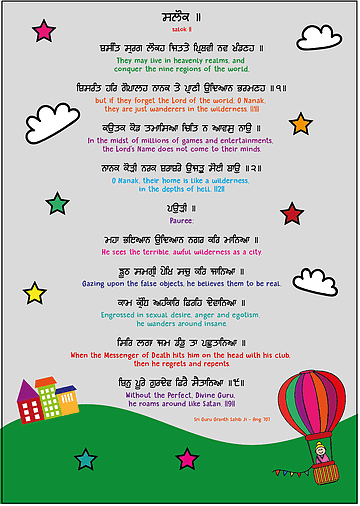 ਸਲੋਕ ॥
salok ||
ਬਸੰਤਿ ਸ੍ਵਰਗ ਲੋਕਹ ਜਿਤਤੇ ਪ੍ਰਿਥਵੀ ਨਵ ਖੰਡਣਹ ॥
They may live in heavenly realms, and
conquer the nine regions of the world,
ਬਿਸਰੰਤ ਹਰਿ ਗੋਪਾਲਹ ਨਾਨਕ ਤੇ ਪ੍ਰਾਣੀ ਉਦਿਆਨ ਭਰਮਣਹ ॥੧॥
but if they forget the Lord of the world, O Nanak,
they are just wanderers in the wilderness. ||1||
ਕਉਤਕ ਕੋਡ ਤਮਾਸਿਆ ਚਿਤਿ ਨ ਆਵਸੁ ਨਾਉ ॥
In the midst of millions of games and entertainments,
the Lord's Name does not come to their minds.
ਨਾਨਕ ਕੋੜੀ ਨਰਕ ਬਰਾਬਰੇ ਉਜੜੁ ਸੋਈ ਥਾਉ ॥੨॥
O Nanak, their home is like a wilderness,
in the depths of hell. ||2||
ਪਉੜੀ ॥
Pauree:
ਮਹਾ ਭਇਆਨ ਉਦਿਆਨ ਨਗਰ ਕਰਿ ਮਾਨਿਆ ॥
He sees the terrible, awful wilderness as a city.
ਝੂਠ ਸਮਗ੍ਰੀ ਪੇਖਿ ਸਚੁ ਕਰਿ ਜਾਨਿਆ ॥
Gazing upon the false objects, he believes them to be real.
ਕਾਮ ਕ੍ਰੋਧਿ ਅਹੰਕਾਰਿ ਫਿਰਹਿ ਦੇਵਾਨਿਆ ॥
Engrossed in sexual desire, anger and egotism,
he wanders around insane.
ਸਿਰਿ ਲਗਾ ਜਮ ਡੰਡੁ ਤਾ ਪਛੁਤਾਨਿਆ ॥
When the Messenger of Death hits him on the head with his club,
then he regrets and repents.
ਬਿਨੁ ਪੂਰੇ ਗੁਰਦੇਵ ਫਿਰੈ ਸੈਤਾਨਿਆ ॥੯॥
Without the Perfect, Divine Guru,
he roams around like Satan. ||9||
Sri Guru Granth Sahib Ji - Ang 707